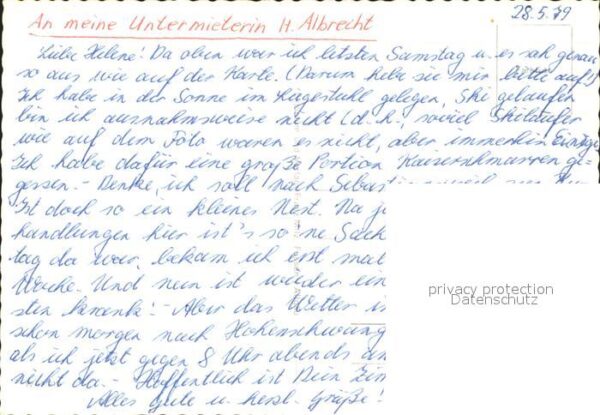 28.5.79
An meine Untermieterin H. Albrecht
Liebe Helene! Da oben war ich letzten Samstag u. es sah genau
so aus wie auf der Karte. (Darum hebe sie mir bitte auf!)
Ich habe in der Sonne im Liegestuhl gelegen, Ski gelaufen
bin ich ausnahmsweise nicht (d.h. soviel Skiläufer
wie auf dem Foto waren es nicht, aber immerhin Einige
Ich habe dafür eine große Portion Kaiserschmarren ge-
gessen. - Denke, ich soll nach
Ist doch so ein kleines Nest. Na
handlungen hier ist's so ne Sach
tag da war, bekam ich erst
Woche. Und nun ist wieder ein
sten krank! - Aber das Wetter is
schon morgen nach Hohenschwang
als ich jetzt gegen 8 Uhr abends an
nicht da. - Hoffentlich ist Dein
Alles Gute u. herzl. Grüße!
privacy protection
Datenschutz